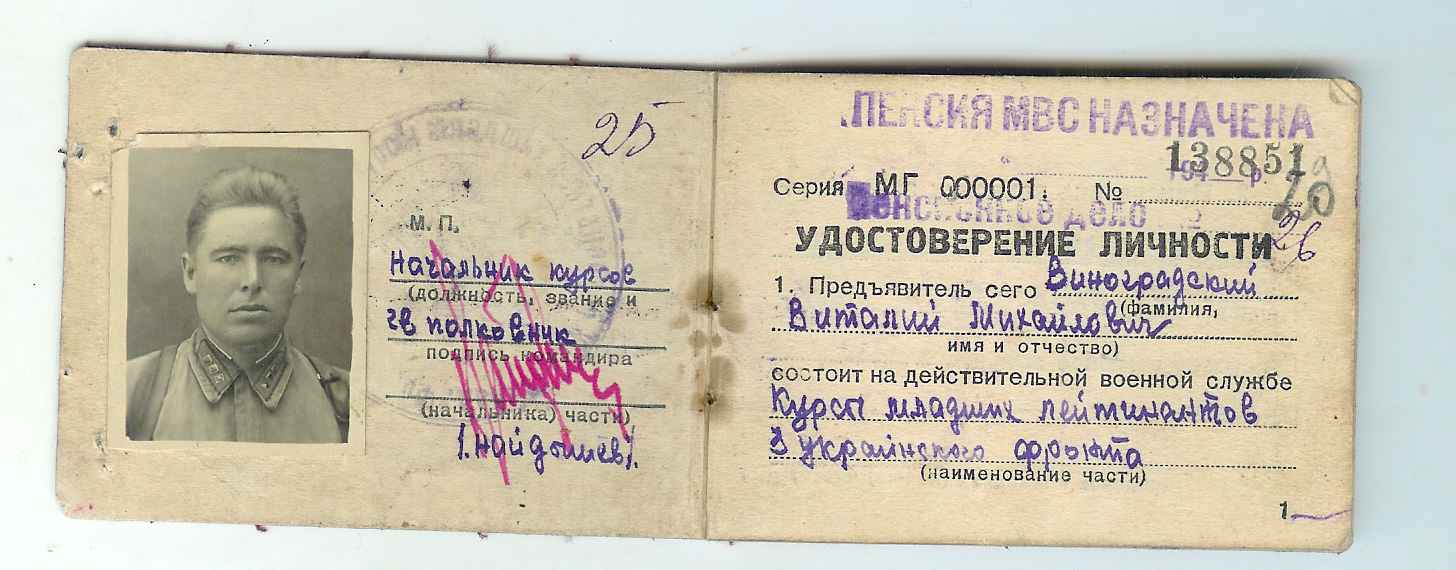 25
М. П.
Начальник курсов
(должность, звание и
гв полковник
подпись командира
(начальника) части)
(Найдышев).
ПЕНСИЯ МВС НАЗНАЧЕНА
138851
Серия МГ 000001. №
10
Пенсионное дело
УДОСТОВЕРЕНИЕ ЛИЧНОСТИ
26
1. Предъявитель сего Виноградский
(фамилия,
Виталий Михайлович
имя и отчество)
состоит на действительной военной службе
Курсы младших лейтинантов
3 украинского фронта
(наименование части)
1